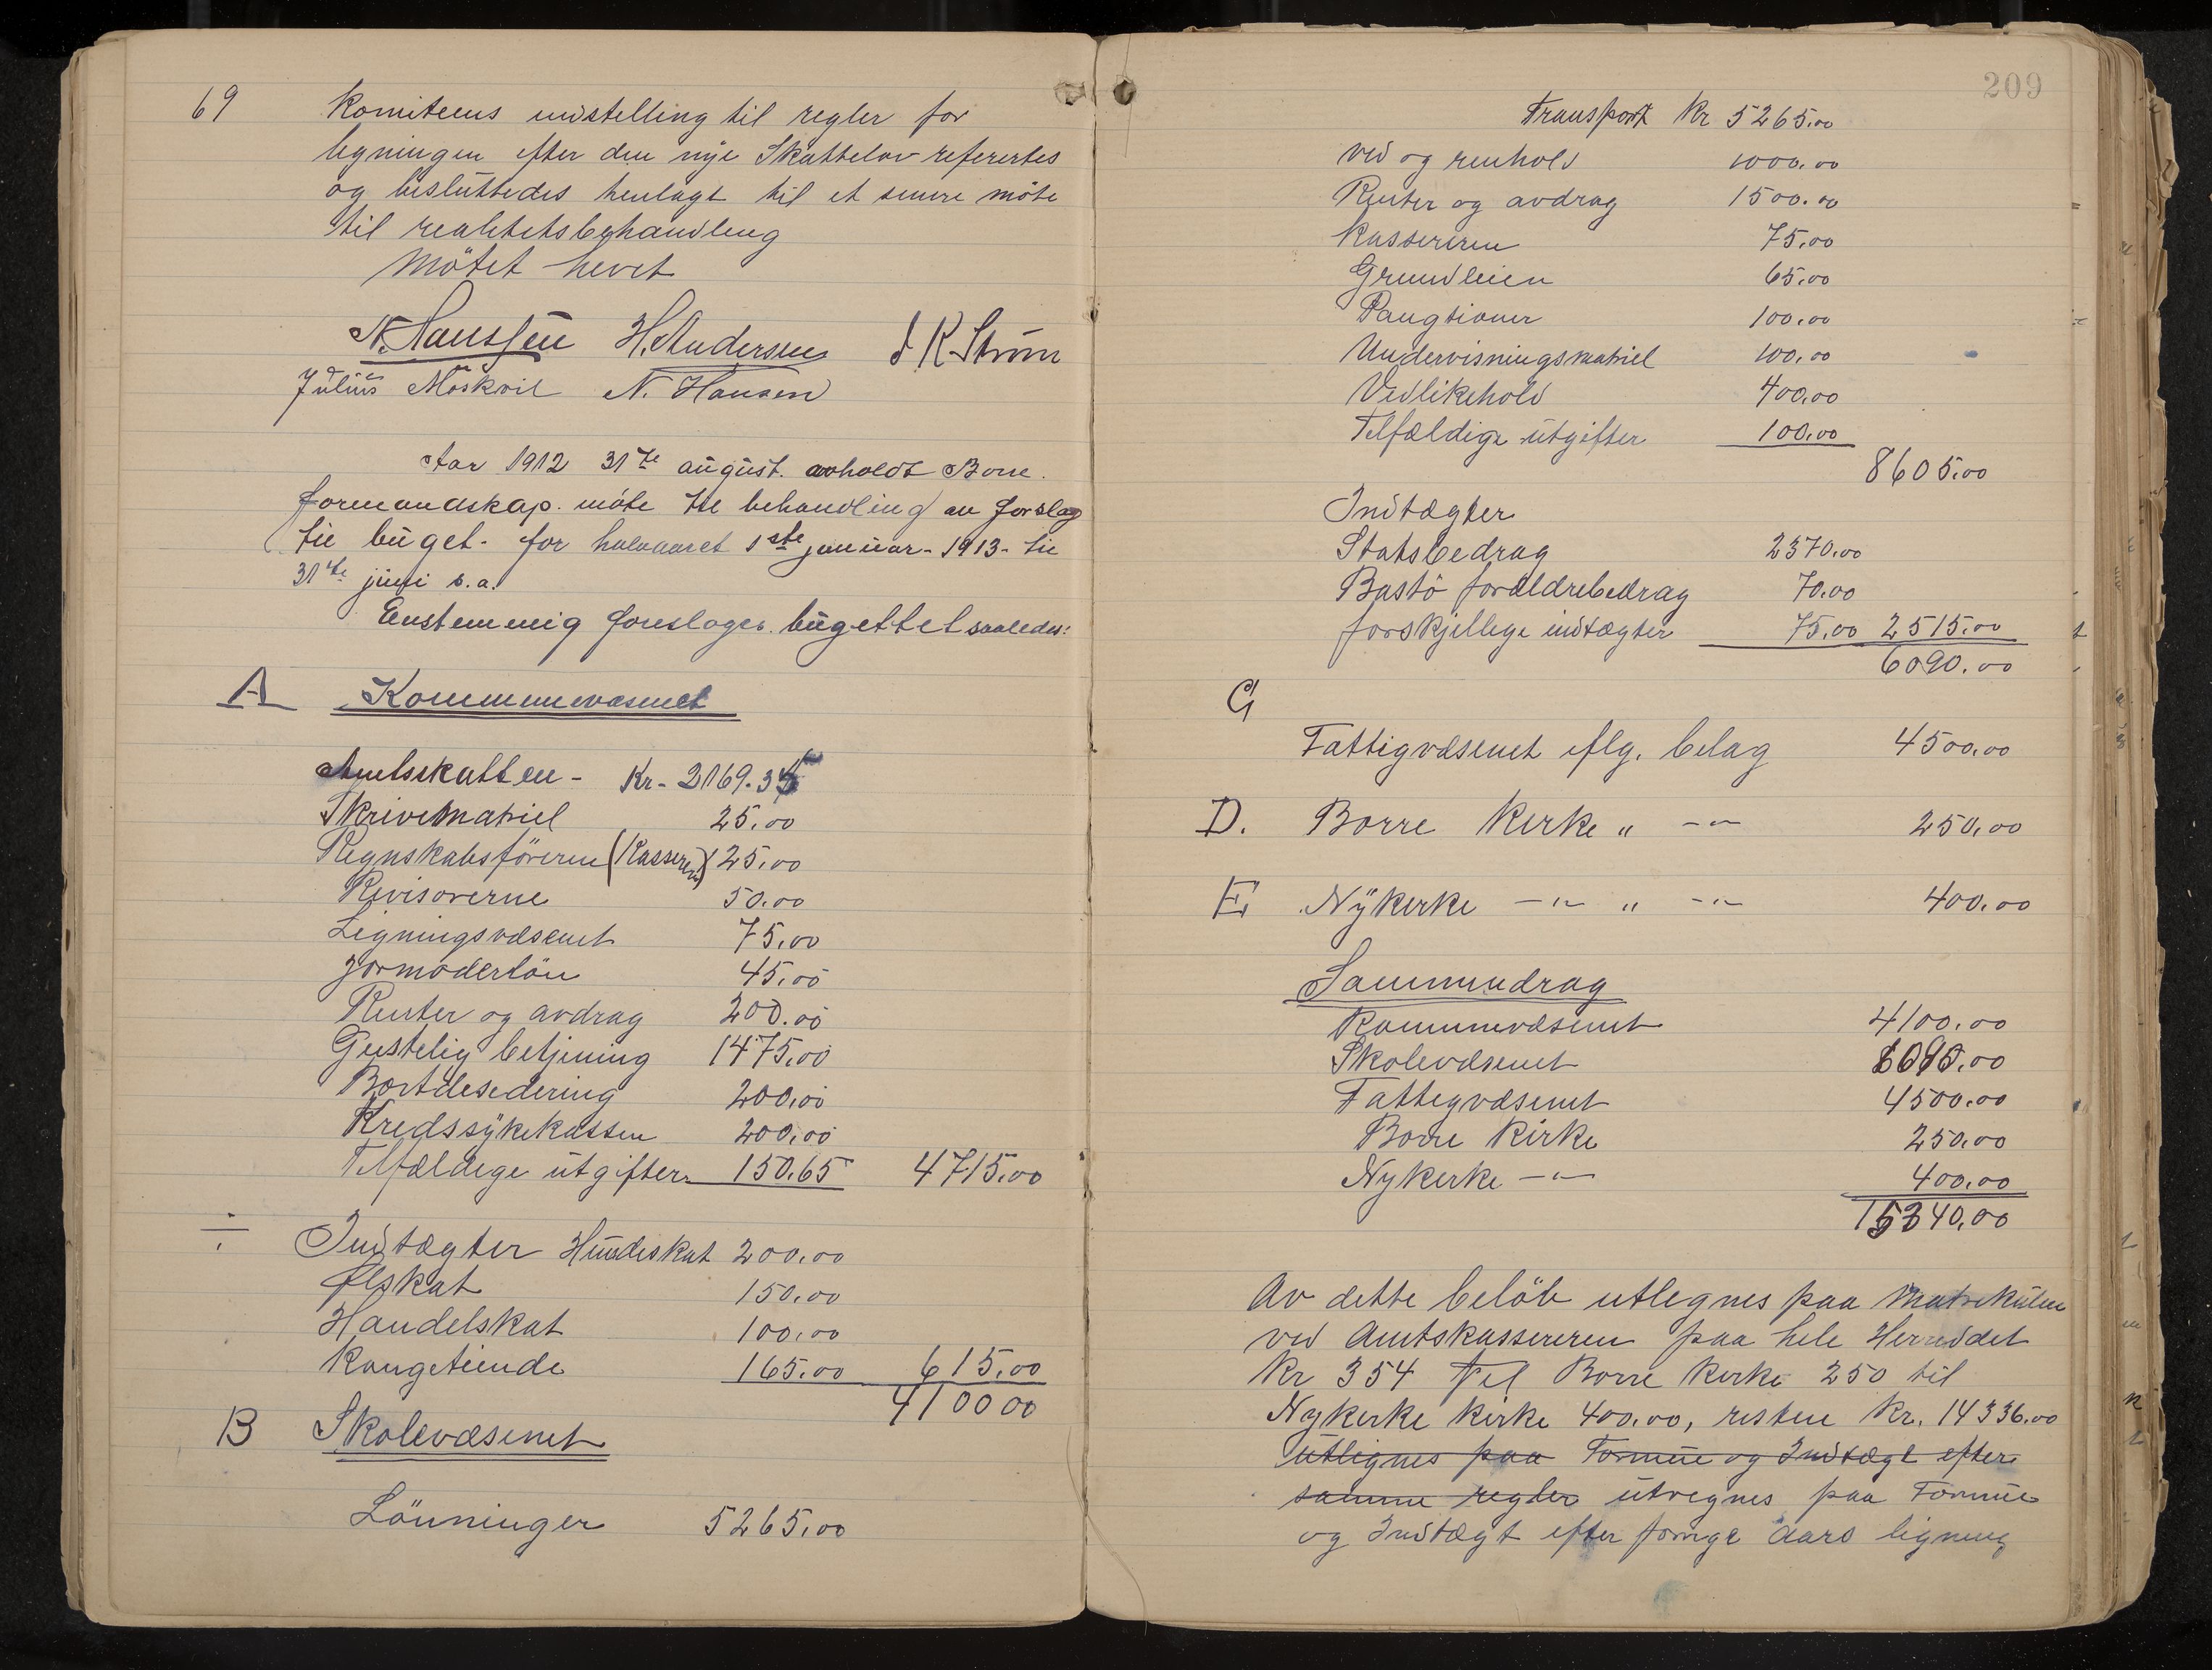 69 Komiteens indstilling til regler for
ligningen efter den nye Skattelov refertes
og besluttedes henlagt til et senere möte
til realitetsbehandling
Mötet hevet
N. Hanssen H. Andersen J. K. Ström
Julius Moskvil N. Hansen
Aar 1912 31te august. avholdt Borre
formandskap. möte til behandling av forslag
til büget. for halvaaret 1ste januar-1913- til
31te juni s.a.
Enstemmig foreslages bügettet saaledes:
A Kommunevæsenet
Amtsskatten - Kr- 2169.35
Skrivematriel 25.00
Regnskabsföreren (Kasseren) 125.00
Revisorerne 50.00
Ligningsvæsenet 75.00
Jormoderlön 45.00
Renter og avdrag 200.00
Geistelig betjening 1475.00
Bortdesedering 200.00
Kredssykekassen 200.00
Tilfældige utgifter 150.65 4715.00
÷ Indtægter Hundeskat 200.00
Ølskat 150.00
Handelskat 100.00
Kongetiende 165.00 615.00
4100 00
B Skolevæsenet
Lönninger 5265.00
209
Transport Kr 5265.00
Ved og renhold 1000.00
Renter og avdrag 1500.00
Kassereren 75.00
Grundleien 65.00
Pangtioner 100.00
Undervisningsmatriel 100.00
Vedlikehold 400.00
Tilfældige utgifter 100.00
8605.00
Indtægter
Statsbedrag 2370.00
Bastö forældrebedrag 70.00
forskjellige indtægter 75.00 2515.00
6090.00
G
Fattigvæsenet eflg. belag 4500.00
D. Borre Kirke " -"- 250.00
E Nykirke -"- " -"- 400.00
Sammendrag
Kommunevæsenet 4100.00
Skolevæsenet 6090.00
Fattigvæsenet 4500.00
Borre Kirke 250.00
Nykirke -"- 400.00
15340.00
Av dette belöb utlegnes paa Matrikulen
ved Amtskassereren paa hele Herredet
Kr 354 Til Borre Kirke 250 til
Nykirke Kirke 400.00, resten Kr. 14336.00
utlignes paa Formue og Indtægt efter
samme regler utregnes paa Formue
og Indtægt efter forrige aars ligning